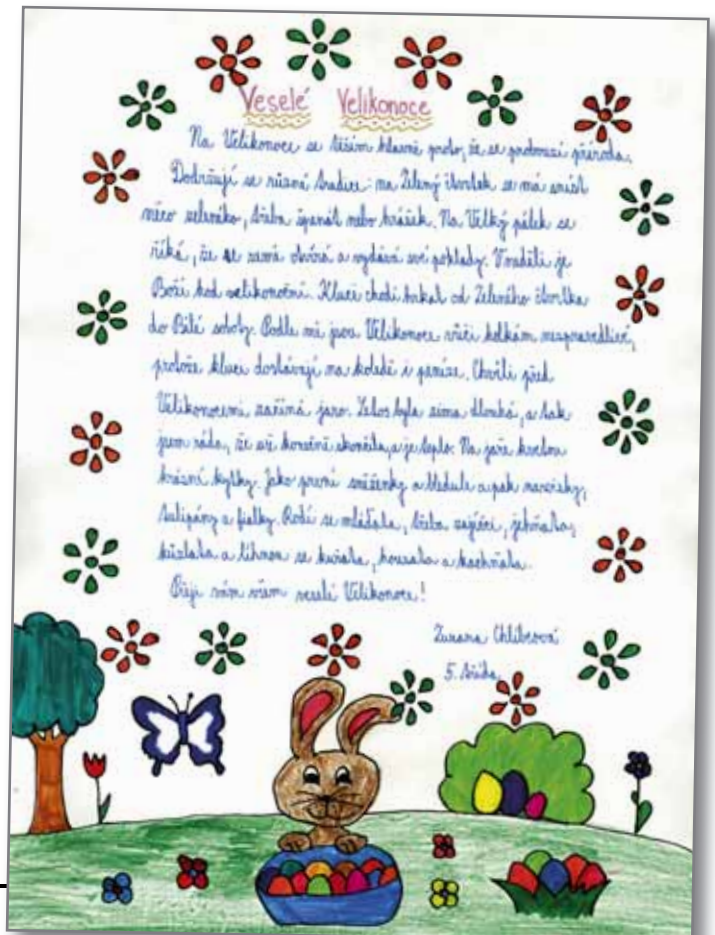 Veselé Velikonoce
Na Velikonoce se těším hlavně proto, že se probouzí příroda.
Dodržují se různé tradice: na Zelený čtvrtek se má sníst
něco zeleného, třeba špenát nebo hrášek. Na Velký pátek se
říká, že se země otvírá a vydává své poklady. V neděli je
Boží hod velikonoční. Kluci chodí hrkat od Zeleného čtvrtka
do Bílé soboty. Podle mě jsou Velikonoce vůči holkám nespravedlivé,
protože kluci dostávají na koledě i peníze. Chvíli před
Velikonocemi začíná jaro. Letos byla zima dlouhá, a tak
jsem ráda, že už konečně skončila, a je teplo. Na jaře kvetou
krásné kytky. Jako první sněženky a bledule a pak narcisky,
tulipány a fialky. Rodí se mláďata, třeba zajíčci, jehňata,
kůzlata a líhnou se kuřata, housata a kachňata.
Přeji vám všem veselé Velikonoce!
Zuzana
5. třída